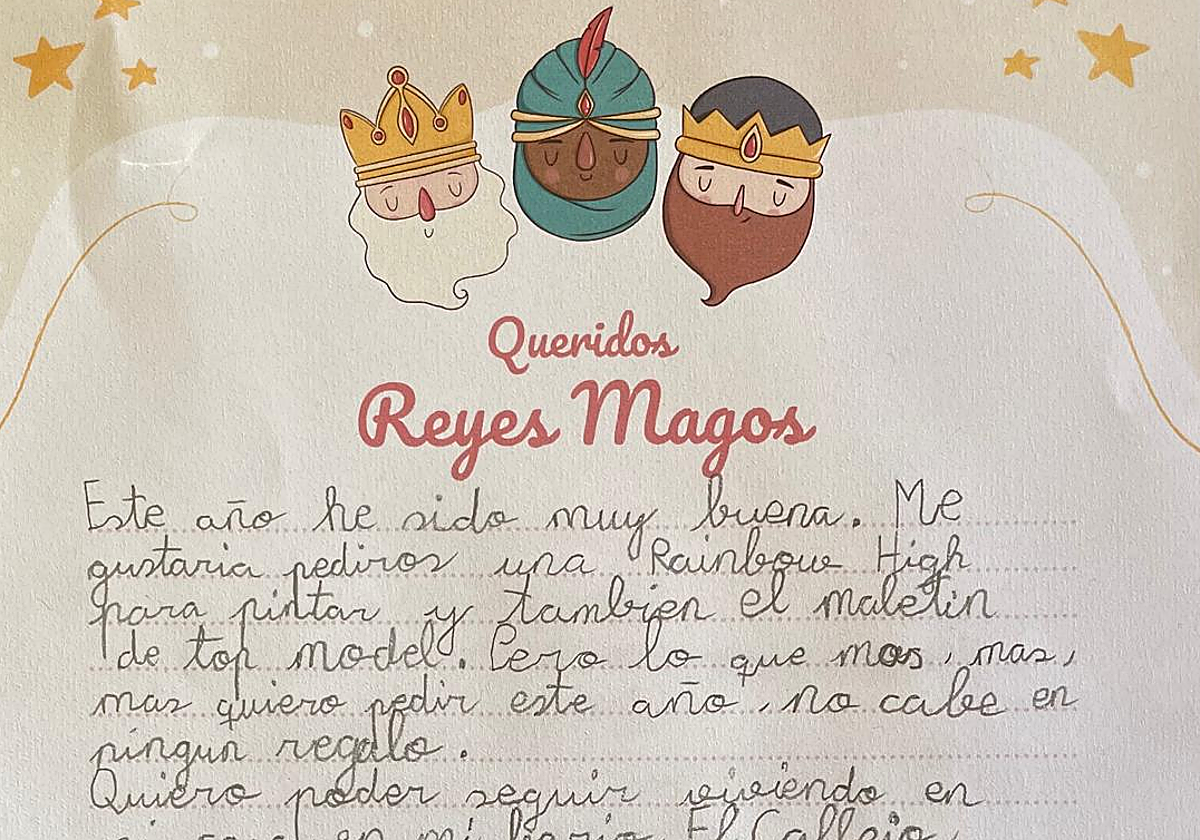 Queridos
Reyes Magos
Este año he sido muy buena. Me
gustaria pediros una Rainbow High
para pintar y tambien el maletin
de top model. Pero lo que mas, mas,
mas quiero pedir este año, no cabe en
ningun regalo.
Quiero poder seguir viviendo en
mi casa en mi barrio El Callejo